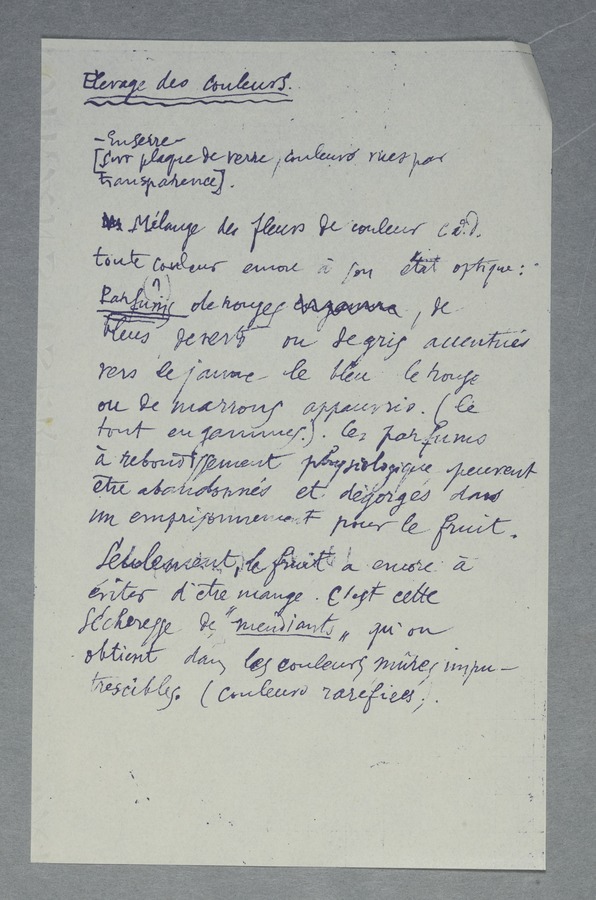 Elevage des couleurs.
- En serre -
[Sur plaque de verre, couleurs vues par
transparence].
Mélange des fleurs de couleur c.à.d.
toute couleur encore à son état optique :
(?)
Parfums de rouges, de
bleus de verts ou de gris accentués
vers le jaune le bleu le rouge
ou de marrons appauvris. (le
tout en gammes.). Ces parfums
à rebondissement physiologique peuvent
être abandonnés et dégorgés dans
un emprisonnement pour le fruit.
Seulement, le fruit a encore à
éviter d'être mangé. C'est cette
sécheresse de "mendiants" qu'on
obtient dans les couleurs mûres impu-
trescibles. (couleurs raréfiées).